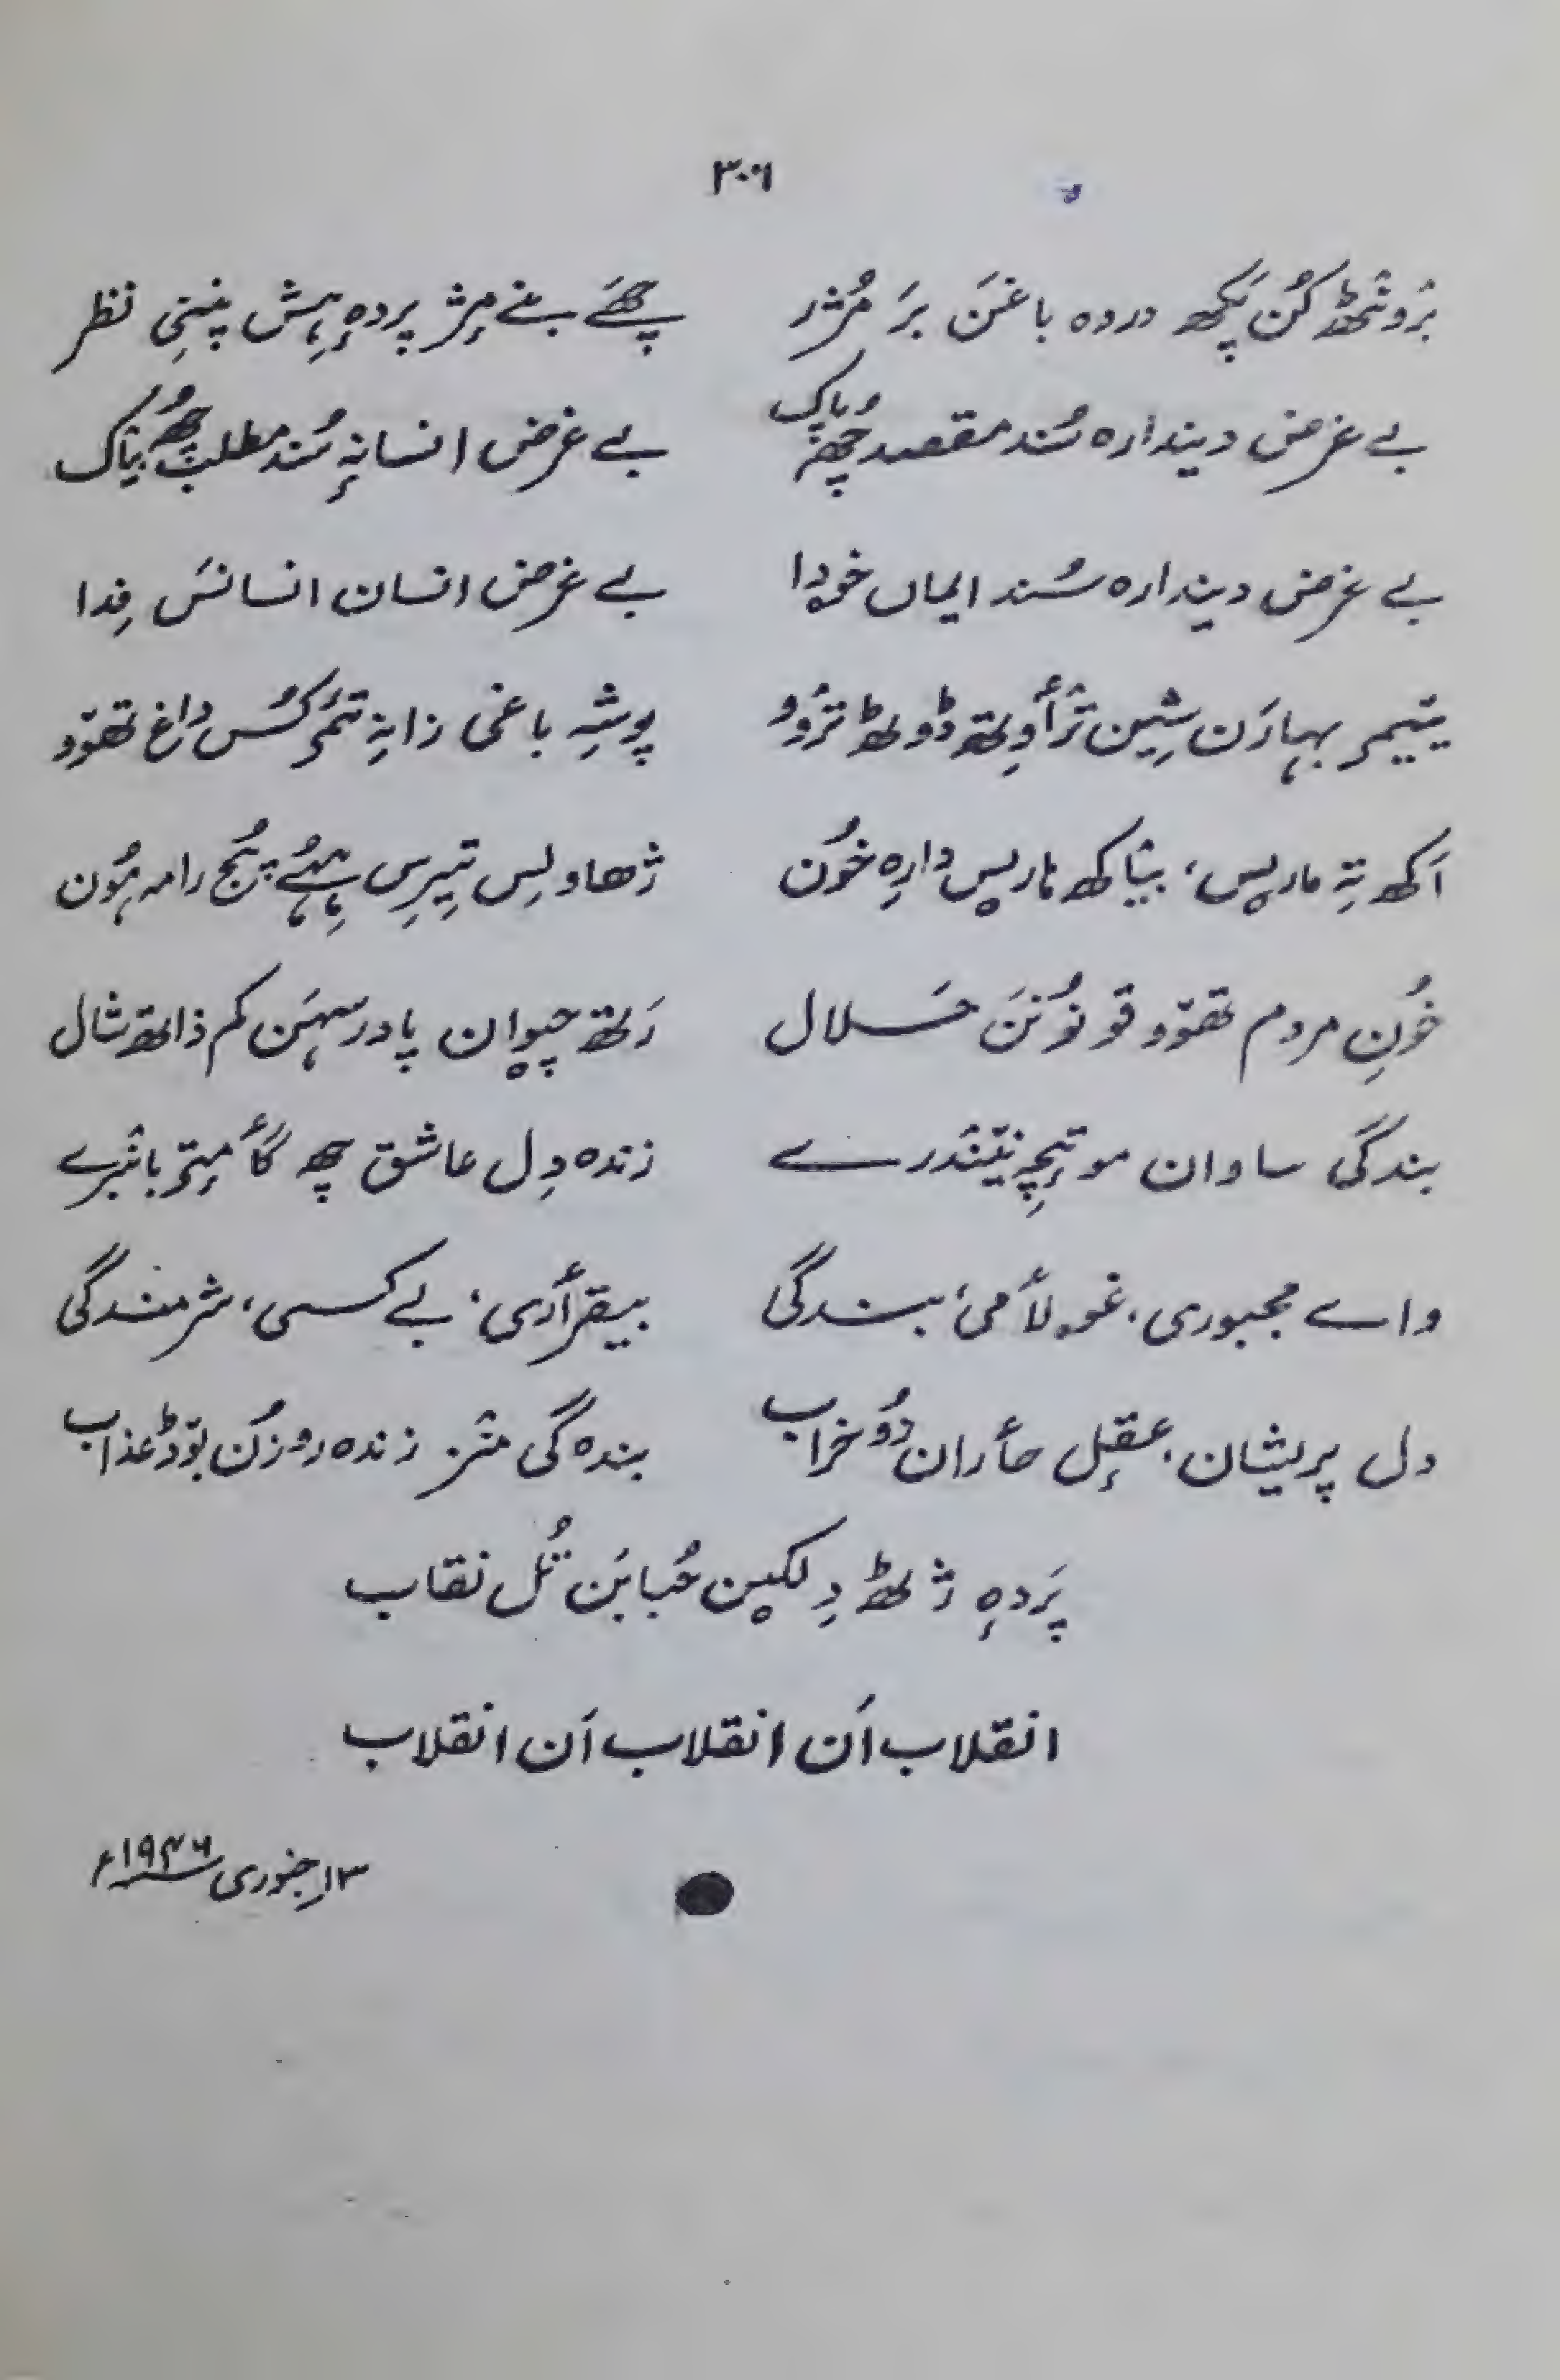 ۳۰۶
بَرُونٹھ کُن پَکھ دردہ باغَن بَر مُژر چھَے بنے مٕژ پردہٕ ہِش پننِی نظر
بے غرض دیندارہ سُند مقصد چھُہ پاک بے غرض انسانہٕ سُند مطلب چھُہ بیٛاک
بے غرض دیندارہ سُند ایماں خۄدا بے غرض انسان انسانَس فِدا
یٔتیمر بہارَن شِین ترٲوِتھ ڈولٹھ ترٛوو پوشہِ باغی زانہِ تٔمر کُس داغ تھوٚو
اَکھ تہِ مارِیس، بیٛاکھ ماریس دارِہ خوٗن ژھاولِس تِیرِس ہِہُے پُج رامہ ہوٗن
خوٗنِ مردم تھوٚو قونوٗنَن حَلال رَلتھ چیوان پادر سہَن کم ذاتھ شال
بندگی ساوان موتٕچہِ نیٚندرے زندہ دِل عاشق چھِ گٲمِتر بانبرے
واے مجبوری، غۄلٲمی، بندگی بیقرٲری، بے کسی، شرمندگی
دل پریشان، عقٕل حٲران دوٗ خراب بندہ گی منٛز زندہ روزُن بوٚڈ عذاب
پَردہٕ ژٹھ دِلکین حُبابَن تُل نقاب
انقلاب اَن انقلاب اَن انقلاب
۱۳؍جنوری ۱۹۴۶ء